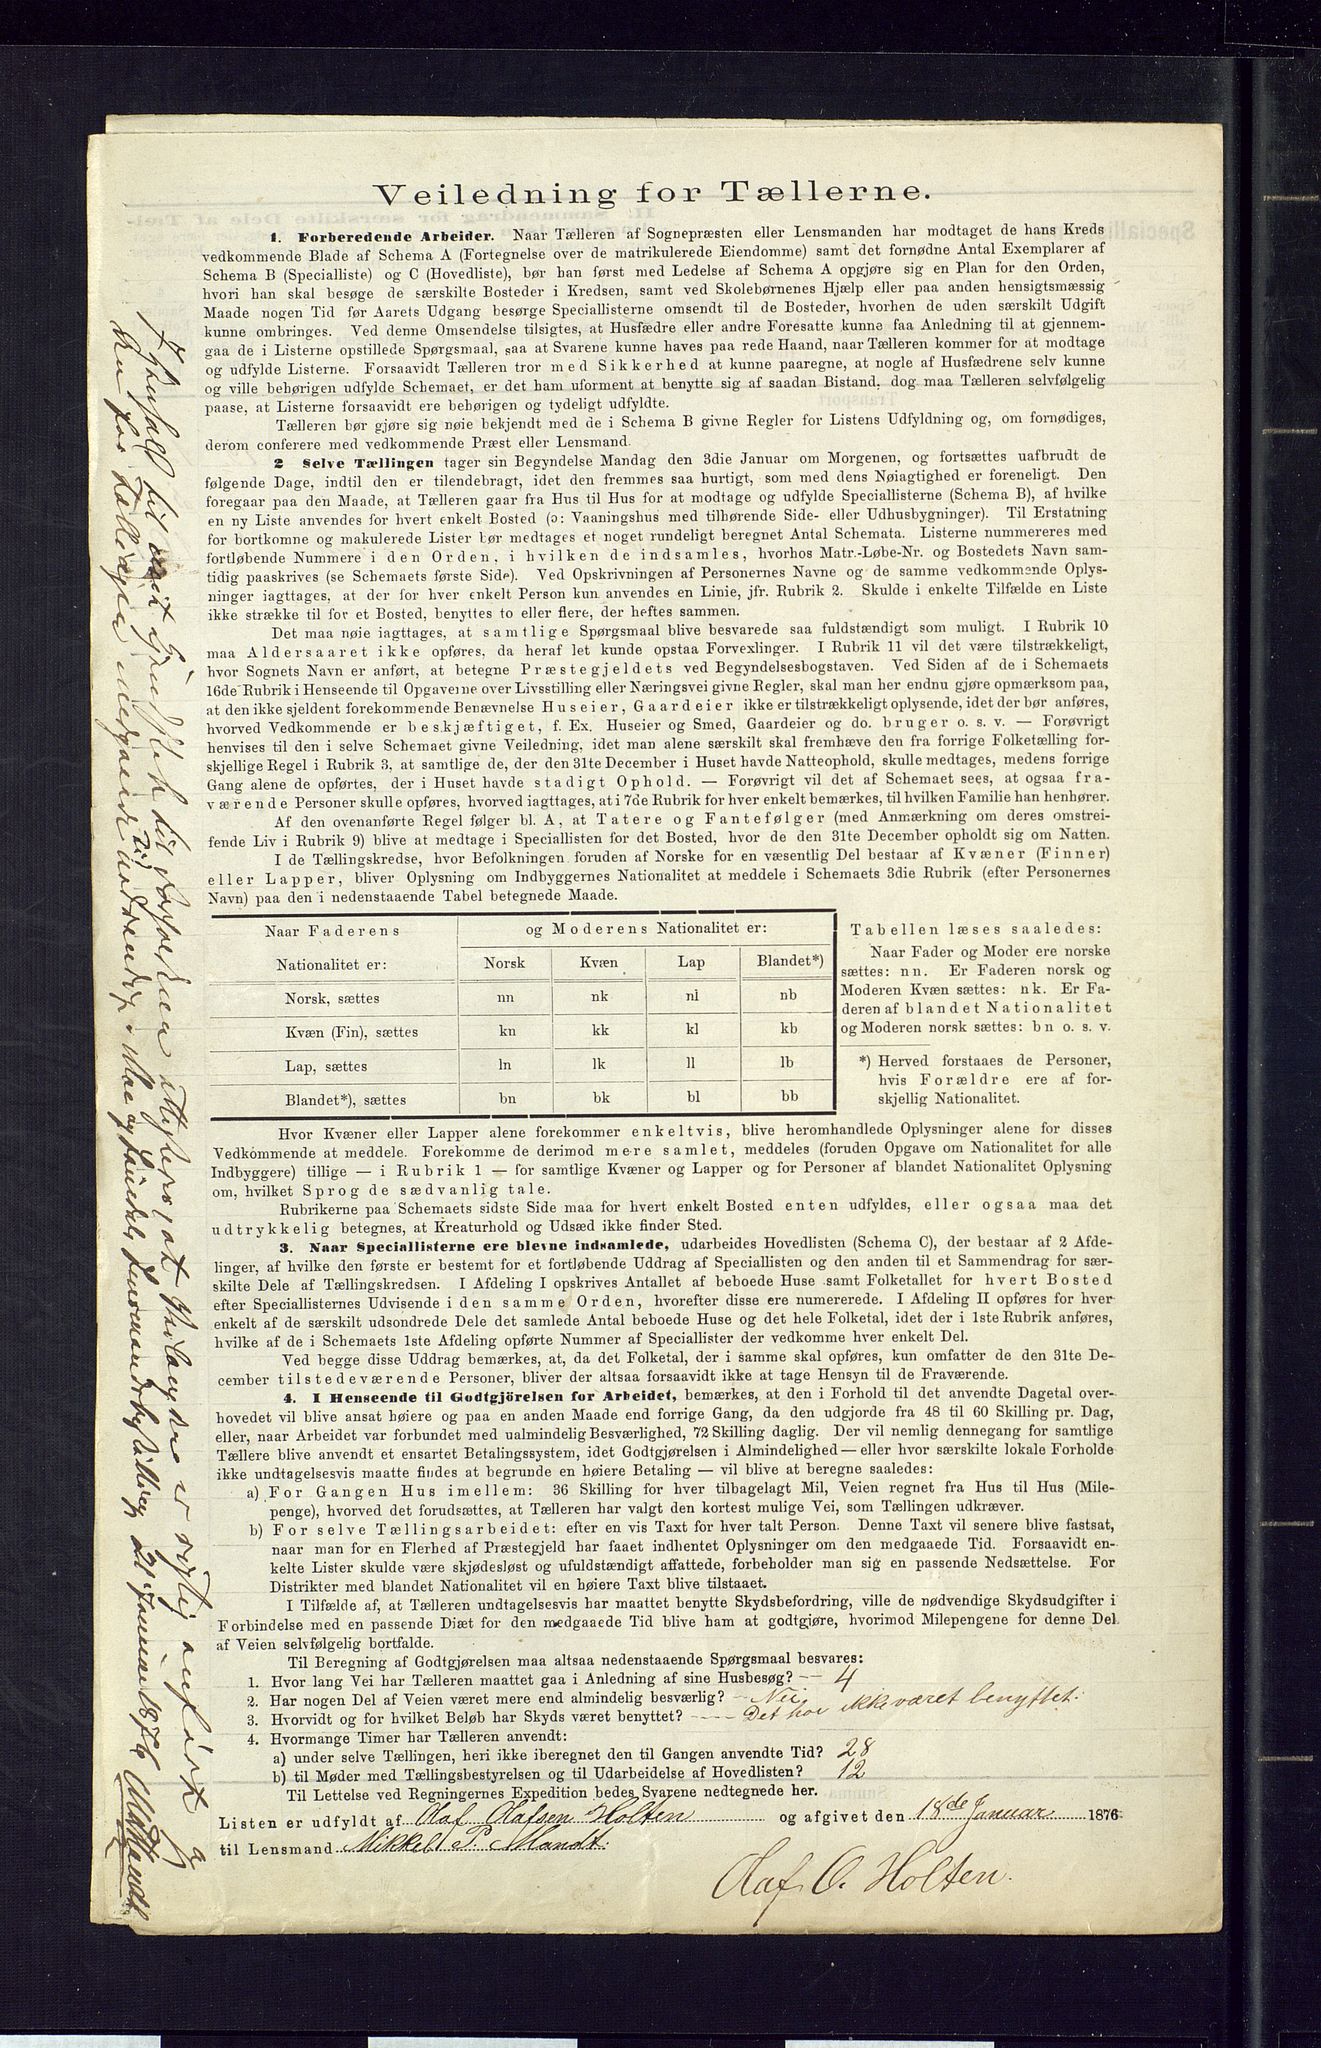 Veiledning for Tællerne.
1. Forberedende Arbeider. Naar Tælleren af Sognepræsten eller Lensmanden har modtaget de hans Kreds
vedkommende Blade af Schema A (Fortegnelse over de matrikulerede Eiendomme) samt det fornødne Antal Exemplarer af
Schema B (Specialliste) og C (Hovedliste), bør han først med Ledelse af Schema A opgjøre sig en Plan for den Orden,
hvori han skal besøge de særskilte Bosteder i Kredsen, samt ved Skolebørnenes Hjælp eller paa anden hensigtsmæssig
Maade nogen Tid før Aarets Udgang besørge Speciallisterne omsendt til de Bosteder, hvorhen de uden særskilt Udgift
kunne ombringes. Ved denne Omsendelse tilsigtes, at Husfædre eller andre Foresatte kunne faa Anledning til at gjennem-
gaa de i Listerne opstillede Spørgsmaal, saa at Svarene kunne haves paa rede Haand, naar Tælleren kommer for at modtage
og udfylde Listerne. Forsaavidt Tælleren tror med Sikkerhed at kunne paaregne, at nogle af Husfædrene selv kunne
og ville behørigen udfylde Schemaet, er det ham uforment at benytte sig af saadan Bistand, dog maa Tælleren selvfølgelig
paase, at Listerne forsaavidt ere behørigen og tydeligt udfyldte.
Tælleren bør gjøre sig nøie bekjendt med de i Schema B givne Regler for Listens Udfyldning og, om fornødiges,
derom conferere med vedkommende Præst eller Lensmand.
2 Selve Tællingen tager sin Begyndelse Mandag den 3die Januar om Morgenen, og fortsættes uafbrudt de
følgende Dage, indtil den er tilendebragt, idet den fremmes saa hurtigt, som med dens Nøiagtighed er foreneligt. Den
foregaar paa den Maade, at Tælleren gaar fra Hus til Hus for at modtage og udfylde Speciallisterne (Schema B), af hvilke
en ny Liste anvendes for hvert enkelt Bosted (ɔ: Vaaningshus med tilhørende Side- eller Udhusbygninger). Til Erstatning
for bortkomne og makulerede Lister bør medtages et noget rundeligt beregnet Antal Schemata. Listerne nummereres med
fortløbende Nummere i den Orden, i hvilken de indsamles, hvorhos Matr.-Løbe-Nr. og Bostedets Navn sam-
tidig paaskrives (se Schemaets første Side). Ved Opskrivningen af Personernes Navne og de samme vedkommende Oplys-
ninger iagttages, at der for hver enkelt Person kun anvendes en Linie, jfr. Rubrik 2. Skulde i enkelte Tilfælde en Liste
ikke strække til for et Bosted, benyttes to eller flere, der heftes sammen.
Det maa nøie iagttages, at samtlige Spørgsmaal blive besvarede saa fuldstændigt som muligt. I Rubrik 10
maa Aldersaaret ikke opføres, da heraf let kunde opstaa Forvexlinger. I Rubrik 11 vil det være tilstrækkeligt,
hvor Sognets Navn er anført, at betegne Præstegjeldets ved Begyndelsesbogstaven. Ved Siden af de i Schemaets
16de Rubrik i Henseende til Opgaverne over Livsstilling eller Næringsvei givne Regler, skal man her endnu gjøre opmærksom paa,
at den ikke sjeldent forekommende Benævnelse Huseier, Gaardeier ikke er tilstrækkeligt oplysende, idet der bør anføres,
hvorved Vedkommende er beskjæftiget, f. Ex. Huseier og Smed, Gaardeier og do. bruger o. s. v. — Forøvrigt
henvises til den i selve Schemaet givne Veiledning, idet man alene særskilt skal fremhæve den fra forrige Folketælling for-
skjellige Regel i Rubrik 3, at samtlige de, der den 31te December i Huset havde Natteophold, skulle medtages, medens forrige
Gang alene de opførtes, der i Huset havde stadigt Ophold. — Forøvrigt vil det af Schemaet sees, at ogsaa fra-
værende Personer skulle opføres, hvorved iagttages, at i 7de Rubrik for hver enkelt bemærkes, til hvilken Familie han henhører.
Af den ovenanførte Regel følger bl. A, at Tatere og Fantefølger (med Anmærkning om deres omstrei-
fende Liv i Rubrik 9) blive at medtage i Speciallisten for det Bosted, hvor de den 31te December opholdt sig om Natten.
I de Tællingskredse, hvor Befolkningen foruden af Norske for en væsentlig Del bestaar af Kvæner (Finner)
eller Lapper, bliver Oplysning om Indbyggernes Nationalitet at meddele i Schemaets 3die Rubrik (efter Personernes
Navn) paa den i nedenstaaende Tabel betegnede Maade.
Naar Faderens og Moderens Nationalitet er:
Nationalitet er: Norsk Kvæn Lap Blandet*)
Norsk, sættes nn nk nl nb
Kvæn (Fin), sættes kn kk kl kb
Lap, sættes ln lk ll lb
Blandet*), sættes bn bk bl bb
Tabellen læses saaledes:
Naar Fader og Moder ere norske
sættes: nn. Er Faderen norsk og
Moderen Kvæn sættes: nk. Er Fa-
deren af blandet Nationalitet
og Moderen norsk sættes: bn o. s. v.
*) Herved forstaaes de Personer,
hvis Forældre ere af for-
skjellig Nationalitet.
Hvor Kvæner eller Lapper alene forekommer enkeltvis, blive heromhandlede Oplysninger alene for disses
Vedkommende at meddele. Forekomme de derimod mere samlet, meddeles (foruden Opgave om Nationalitet for alle
Indbyggere) tillige — i Rubrik 1 — for samtlige Kvæner og Lapper og for Personer af blandet Nationalitet Oplysning
om, hvilket Sprog de sædvanlig tale.
Rubrikerne paa Schemaets sidste Side maa for hvert enkelt Bosted enten udfyldes, eller ogsaa maa det
udtrykkelig betegnes, at Kreaturhold og Udsæd ikke finder Sted.
3. Naar Speciallisterne ere blevne indsamlede, udarbeides Hovedlisten (Schema C), der bestaar af 2 Afde-
linger, af hvilke den første er bestemt for et fortløbende Uddrag af Speciallisten og den anden til et Sammendrag for sær-
skilte Dele af Tællingskredsen. I Afdeling I opskrives Antallet af beboede Huse samt Folketallet for hvert Bosted
efter Speciallisternes Udvisende i den samme Orden, hvorefter disse ere numererede. I Afdeling II opføres for hver
enkelt af de særskilt udsondrede Dele det samlede Antal beboede Huse og det hele Folketal, idet der i 1ste Rubrik anføres,
hvilke af de i Schemaets 1ste Afdeling opførte Nummer af Speciallister der vedkomme hver enkelt Del.
Ved begge disse Uddrag bemærkes, at, da det Folketal, der i samme skal opføres, kun omfatter de den 31te De-
cember tilstedeværende Personer, bliver der altsaa forsaavidt ikke at tage Hensyn til de Fraværende.
4. I Henseende til Godtgjörelsen for Arbeidet, bemærkes, at den i Forhold til det anvendte Dagetal over-
hovedet vil blive ansat høiere og paa en anden Maade end forrige Gang, da den udgjorde fra 48 til 60 Skilling pr. Dag,
eller, naar Arbeidet var forbundet med ualmindelig Besværlighed, 72 Skilling daglig. Der vil nemlig dennegang for samtlige
Tællere blive anvendt et ensartet Betalingssystem, idet Godtgjørelsen i Almindelighed — eller hvor særskilte lokale Forholde
ikke undtagelsesvis maatte findes at begrunde en høiere Betaling — vil blive at beregne saaledes:
a) For Gangen Hus imellem: 36 Skilling for hver tilbagelagt Mil, Veien regnet fra Hus til Hus (Mile-
penge), hvorved det forudsættes, at Tælleren har valgt den kortest mulige Vei, som Tællingen udkræver.
b) For selve Tællingsarbeidet: efter en vis Taxt for hver talt Person. Denne Taxt vil senere blive fastsat,
naar man for en Flerhed af Præstegjeld har faaet indhentet Oplysninger om den medgaaede Tid. Forsaavidt en-
kelte Lister skulde være skjødesløst og ufuldstændigt affattede, forbeholder man sig en passende Nedsættelse. For
Distrikter med blandet Nationalitet vil en høiere Taxt blive tilstaaet.
I Tilfælde af, at Tælleren undtagelsesvis har maattet benytte Skydsbefordring, ville de nødvendige Skydsudgifter i
Forbindelse med en passende Diæt for den medgaaede Tid blive ham at godtgjøre, hvorimod Milepengene for denne Del
af Veien selvfølgelig bortfalde.
Til Beregning af Godtgjørelsen maa altsaa nedenstaaende Spørgsmaal besvares:
1. Hvor lang Vei har Tælleren maattet gaa i Anledning af sine Husbesøg? — 4
2. Har nogen Del af Veien været mere end almindelig besværlig? — Nei
3. Hvorvidt og for hvilket Beløb har Skyds været benyttet? — Det har ikke været benyttet.
4. Hvormange Timer har Tælleren anvendt:
a) under selve Tællingen, heri ikke iberegnet den til Gangen anvendte Tid? 28
b) til Møder med Tællingsbestyrelsen og til Udarbeidelse af Hovedlisten? 12
Til Lettelse ved Regningernes Expedition bedes Svarene nedtegnede her.
Listen er udfyldt af Olaf Olafsen Holten og afgivet den 18de Januar 1876
til Lensmand Mikkel P. Mandt.
Olaf O. Holten.